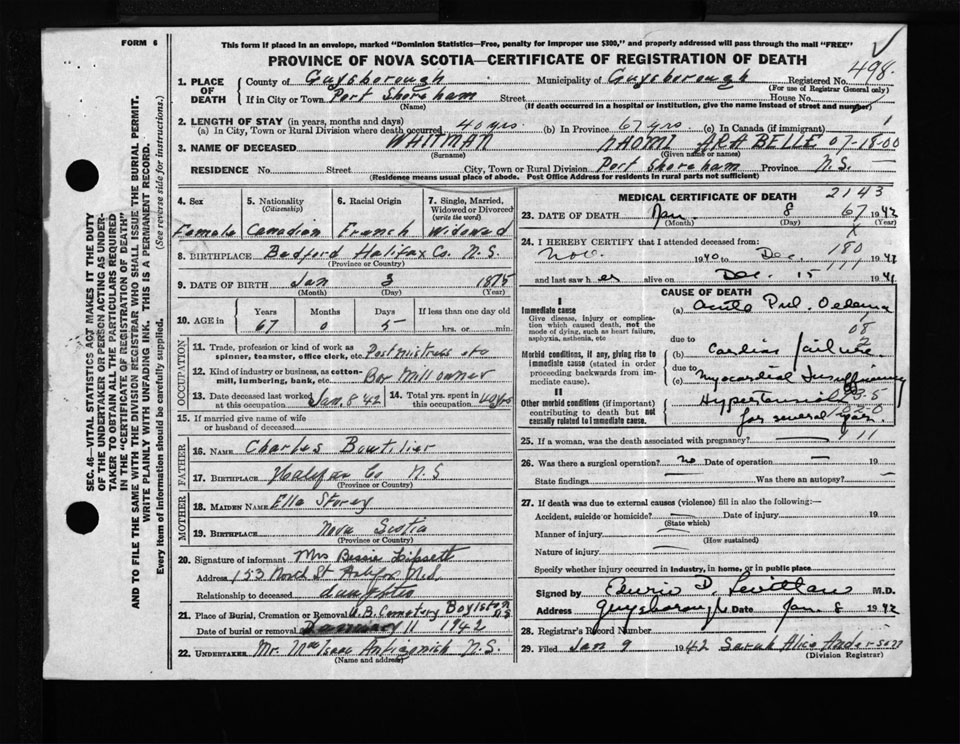 FORM 6
This form if placed in an envelope, marked "Dominion Statistics—Free, penalty for improper use $300," and properly addressed will pass through the mail "FREE"
PROVINCE OF NOVA SCOTIA—CERTIFICATE OF REGISTRATION OF DEATH
498.
1. PLACE OF DEATH
County of Guysborough Municipality of Guysborough Registered No.
(For use of Registrar General only)
If in City or Town Port Shoreham Street House No.
(Name) (If death occurred in a hospital or institution, give the name instead of street and number)
2. LENGTH OF STAY (in years, months and days)
(a) In City, Town or Rural Division where death occurred 40 yrs. (b) In Province 67 yrs. (c) In Canada (if immigrant)
3. NAME OF DECEASED WHITMAN NAOMI ARABELLE 07-18-00
(Surname) (Given name or names)
RESIDENCE No. Street City, Town or Rural Division Port Shoreham Province N.S.
(Residence means usual place of abode. Post Office Address for residents in rural parts not sufficient)
4. Sex Female
5. Nationality (Citizenship) Canadian
6. Racial Origin French
7. Single, Married, Widowed or Divorced (write the word) Widowed
8. BIRTHPLACE Bedford Halifax Co. N.S.
(Province or Country)
9. DATE OF BIRTH Jan 3 1875
(Month) (Day) (Year)
10. AGE in Years Months Days If less than one day
67 0 5 hrs. or min.
OCCUPATION
11. Trade, profession or kind of work as spinner, teamster, office clerk, etc. Postmistress
12. Kind of industry or business, as cotton-mill, lumbering, bank, etc. Box Mill owner
13. Date deceased last worked at this occupation Jan. 8 42
14. Total yrs. spent in this occupation
15. If married give name of wife or husband of deceased
FATHER
16. NAME Charles Boutilier
17. BIRTHPLACE Halifax Co N.S
(Province or Country)
MOTHER
18. MAIDEN NAME Ella Storey
19. BIRTHPLACE Nova Scotia
(Province or Country)
20. Signature of informant Mrs Bessie Lipsett
Address 153 North St
Relationship to deceased daughter
21. Place of Burial, Cremation or Removal U.B. Cemetery Boylston N.S
Date of burial or removal January 11 1942
22. UNDERTAKER Mr. MacIsaac Antigonish N.S.
(Name and address)
MEDICAL CERTIFICATE OF DEATH
2143
23. DATE OF DEATH Jan. 8 67 1942
(Month) (Day) (Year)
24. I HEREBY CERTIFY that I attended deceased from:
Nov. 1940 to Dec. 1941
180
111
and last saw her alive on Dec. 15 1941
CAUSE OF DEATH
I
Immediate cause
Give disease, injury or complication which caused death, not the mode of dying, such as heart failure, asphyxia, asthenia, etc
(a) Acute Pul. Oedema
due to
Morbid conditions, if any, giving rise to immediate cause (stated in order proceeding backwards from immediate cause).
(b) Cardiac failure
due to
(c) Myocardial Insufficiency
II
Other morbid conditions (if important) contributing to death but not causally related to immediate cause.
Hypertension
for several years.
25. If a woman, was the death associated with pregnancy?
26. Was there a surgical operation? no Date of operation — 19
State findings — Was there an autopsy? —
27. If death was due to external causes (violence) fill in also the following:—
Accident, suicide or homicide? Date of injury 19
(State which)
Manner of injury
(How sustained)
Nature of injury
Specify whether injury occurred in industry, in home, or in public place
Signed by M.D.
Address Guysborough Date Jan. 8 1942
28. Registrar's Record Number
29. Filed Jan 9 1942 Sarah Alice Anderson
(Division Registrar)
SEC. 46—VITAL STATISTICS ACT MAKES IT THE DUTY
OF THE UNDERTAKER OR PERSON ACTING AS UNDER-
TAKER TO OBTAIN ALL THE PARTICULARS REQUIRED
IN THE "CERTIFICATE OF REGISTRATION OF DEATH"
AND TO FILE THE SAME WITH THE DIVISION REGISTRAR WHO SHALL ISSUE THE BURIAL PERMIT.
WRITE PLAINLY WITH UNFADING INK. THIS IS A PERMANENT RECORD.
Every item of information should be carefully supplied. (See reverse side for instructions.)